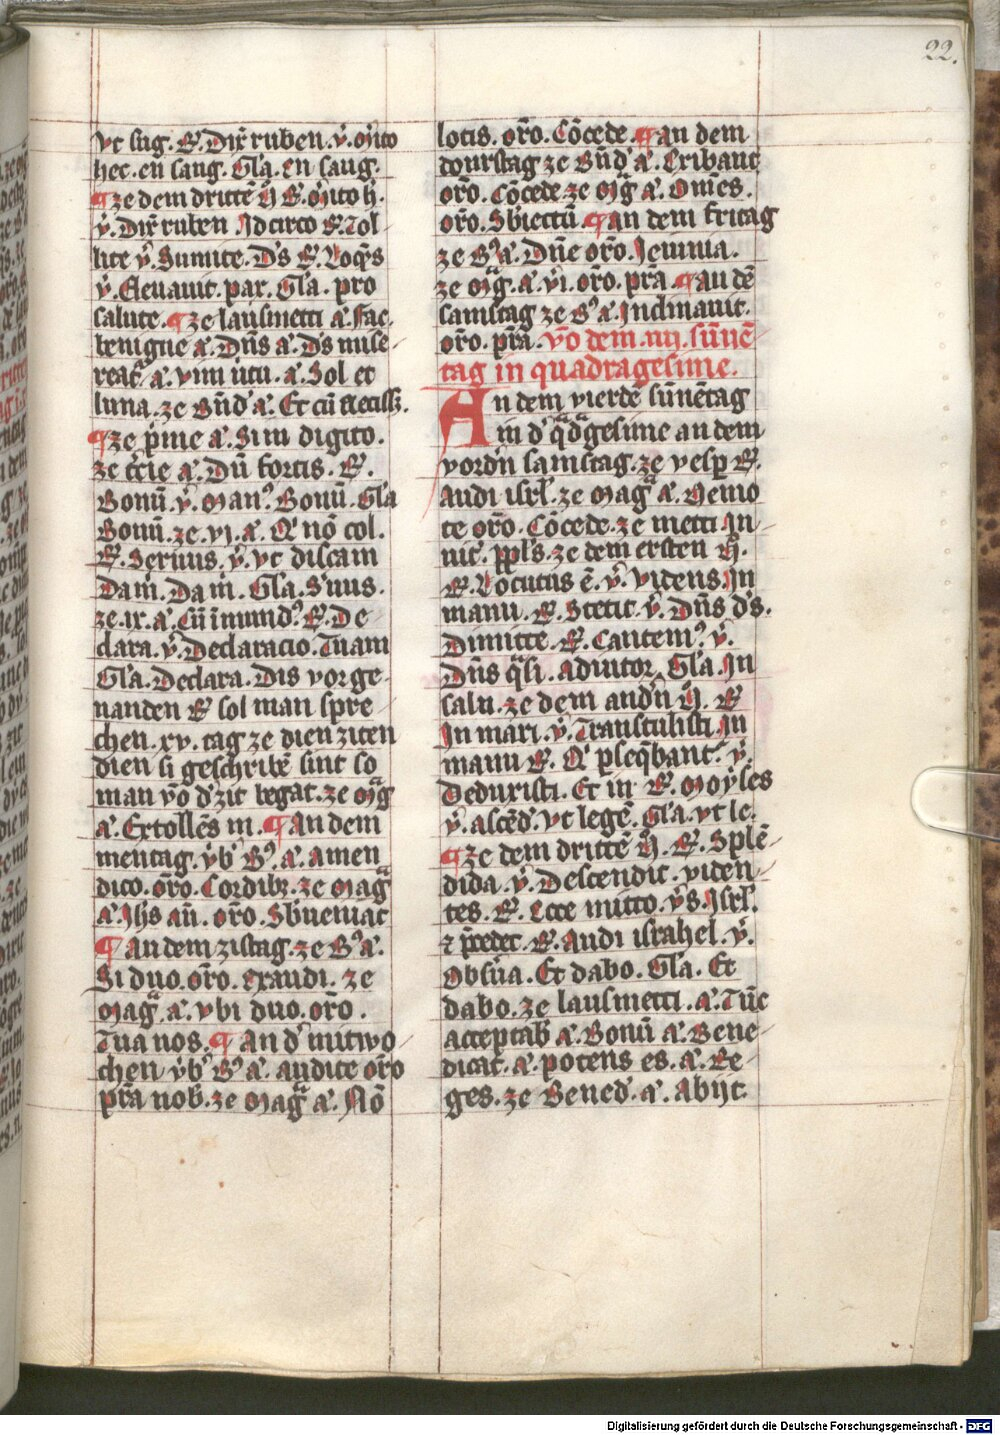 22.
vt sug. R. Dix̄ ruben. v̄. M̄ito
hec. en sang. Gla. en sang.
¶ ze dem drittē N̄ R. M̄ito h.
v̄. Dix̄ ruben Idcirco R. Tol
lite v̄. Sumite. Ds R. Loqr̄s
v̄. Eleuauit. par. Gla. pro
salute. ¶ ze lausmetti a̅. fac
benigne a̅. Dn̄s a̅. Ds mise
reat̄. a̅. viui uiu. a̅. Sol et
luna. ze Bn̄d a̅. Et cū eiecisz.
¶ ze p̄me a̅. Si in digito.
ze t̄cie a̅. Dū fortis. R.
Bonū v̄. Man⁹. Bonū. Gla
Bonū. ze. vj. a̅. Qͥ nō col.
R. Seruus. v̄. vt discam
Dam̄. Dam̄. Gla. S'uus.
ze. ix. a̅. Cū īmund⁹. R. De
clara. v̄. Declaracio. Tuam
Gla. Declara. Dis vor ge
nanden R sol man spre
chen. xv. tag ze dien ziten
dien si geschribē sint so
man vō d' zit begat. ze Mḡ
a̅. Extollēs m. ¶ An dem
mentag. v̄b' B⁹. a̅. amen
dico. or̄o. Cordibꝫ. ze Maḡ
a̅. Ihs au̅. or̄o. Sb'ueniat
¶ an dem zistag. ze B⁹ a̅.
Si duo. or̄o. Exaudi. ze
Maḡ. a̅. vbi duo. or̄o.
Tua nos. ¶ An d' mitwo
chen v̄b' B⁹ a̅. audite or̄o
pr̄a nob. ze Maḡ a̅. Nō
lotis. or̄o. Cōcede ¶ an dem
donrstag ze Bn̄d' a̅. Cribant
or̄o. Cōcede. ze Mḡ a̅. Om̄es.
or̄o. Sb'iectū ¶ an dem fritag
ze B⁹ a̅. Dn̄e or̄o. Jeiunia.
ze Mḡ. a̅. vi. or̄o. pr̄a ¶ an dē
samstag ze B⁹ a̅. Inclinauit.
or̄o. pr̄a. vō dem. iiij. sūnē
tag in quadragesime.
An dem vierdē sūnētag
in d' q̄d̄gesime an dem
vordn̄ samstag. ze vesp R.
audi isrl. ze Maḡ a̅. Nemo
te or̄o. Cōcede. ze metti In
uit̄. ppls. ze dem ersten N̄.
R. Locutus ē. v̄. videns. In
manu. R. Stetit. v̄. Dn̄s ds.
Dimitte. R. Cantem⁹. v̄.
Dn̄s q̄si. adiutor. Gla. In
salu. ze dem andn̄ N̄. R
In mari. v̄. Transtulisti. In
manu R. Qͥ pseq̄bant̄. v̄.
Deduxisti. Et in R. Moyses
v̄. ascēd. vt legē. Gla. vt le.
¶ ze dem drittē N̄. R. Splē
dida. v̄. Descendit. viden
tes. R. Ecce mitto. v̄s. Isrl.
⁊ p̄cedet. R. Audi israhel. v̄.
Obsūa. Et dabo. Gla. Et
dabo. ze lausmetti. a̅. Tūc
acceptab a̅. Bonū a̅. Bene
dicat. a̅. potens es. a̅. Re
ges. ze Bened'. a̅. Abijt.
Digitalisierung gefördert durch die Deutsche Forschungsgemeinschaft - DFG